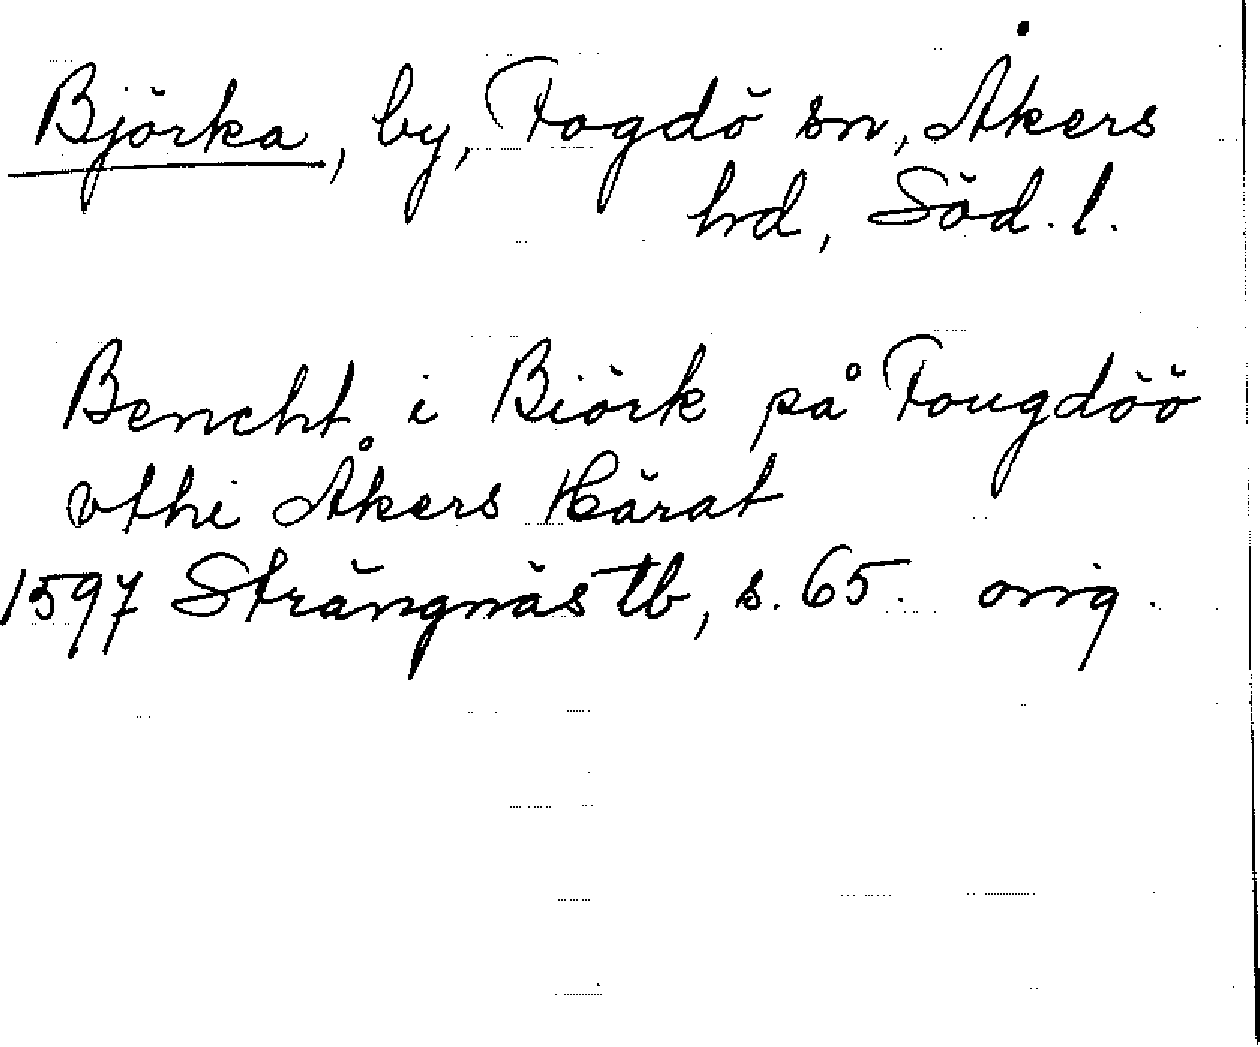 Björka, by, Fogdö sn, Åkers
hd, Söd. l.
Bencht i Biörk på Fougdöö
vthi Åkers Härat
1597 Strängnäs Tb, s. 65. orig.